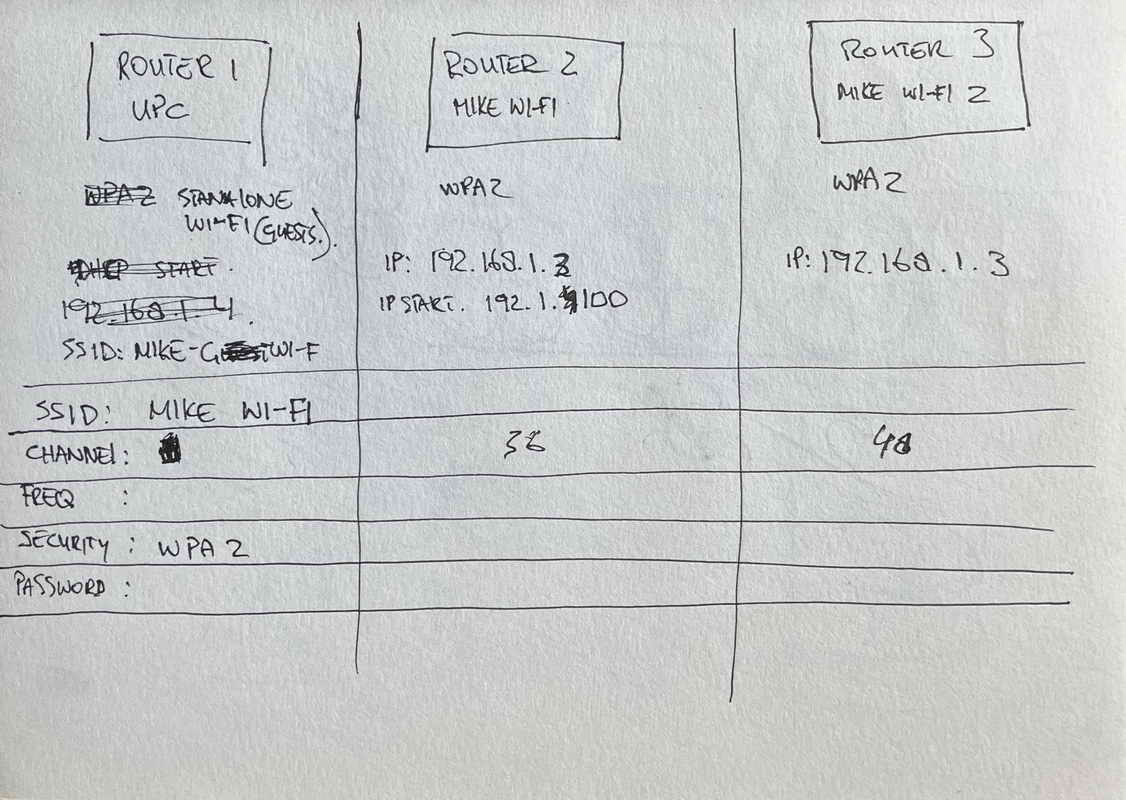 ROUTER 1
UPC
WPA2 STANALONE
WI-FI (GUESTS).
DHCP START.
192.168.1.4.
SSID: MIKE- WI-F
ROUTER 2
MIKE WI-FI
WPA2
IP: 192.168.1.
IP START. 192.1.100
ROUTER 3
MIKE WI-FI 2
WPA2
IP: 192.168.1.3
SSID: MIKE WI-FI
CHANNEL: 36 48
FREQ :
SECURITY : WPA2
PASSWORD :